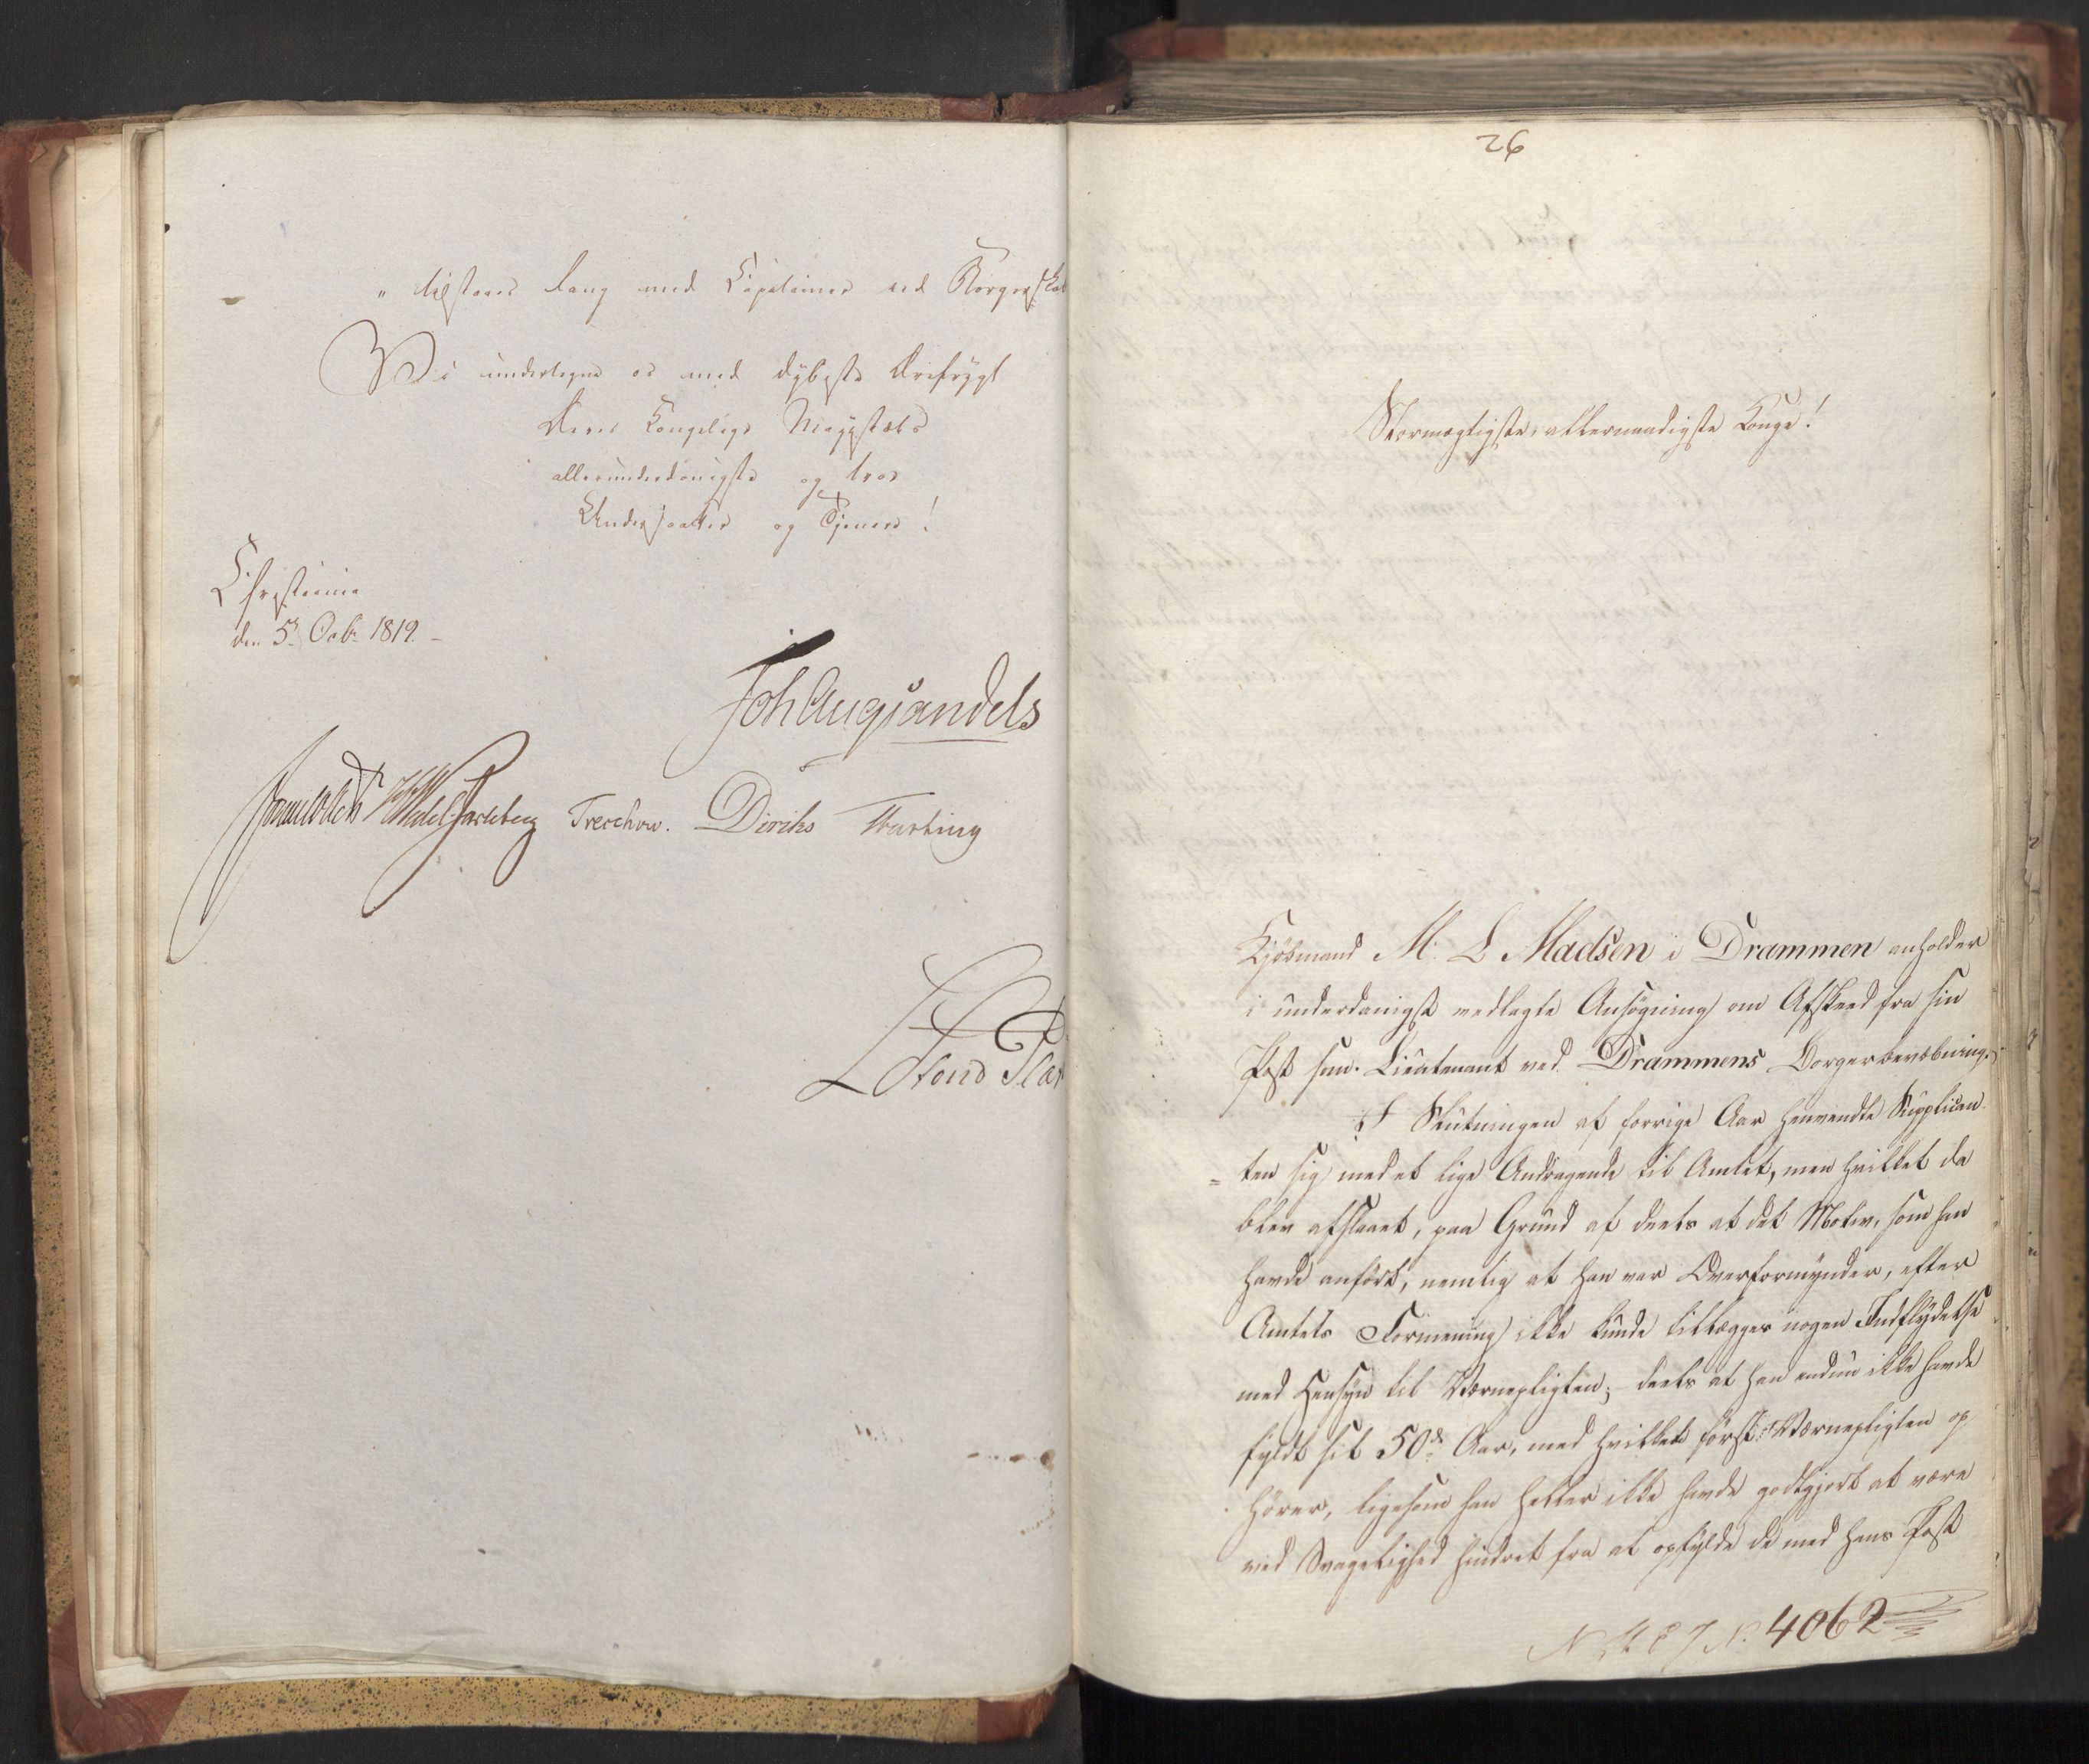 „ tilstaaes Rang med Capitainer ved Borgerskab
Vi undertegne os med dybeste Ærefrygt
Deres Kongelige Majestæts
allerunderdanigste og troe
Undersaatter og Tjenere!
Christiania
den 5te Octbr 1819. -
Joh Aug Sandels
Sommerhielm Wedel Jarlsberg Treschow. Diriks Krefting
26
Stormægtigste, allernaadigste Konge!
Kjöbmand M: L Madsen i Drammen anholder
i underdanigst vedlagte Ansögning om Afskeed fra sin
Post som Lieutenant ved Drammens Borgerbevæbning.
I Slutningen af forrige Aar henvendte Supplican-
= ten sig med et lige Andragende til Amtet, men hvilket da
blev afslaaet, paa Grund af deels at det Motiv, som han
havde anfört, nemlig at han var Overformynder, efter
Amtets Formening ikke kunde tillægges nogen Indflydelse
med Hensyn til Værnepligten; deels at han endnu ikke havde
fyldt sit 50de Aar, med hvilket först Værnepligten op
hörer, ligesom han heller ikke havde godtgjort at være
ved Svagelighed hindret fra at opfylde de med hans Post
4062